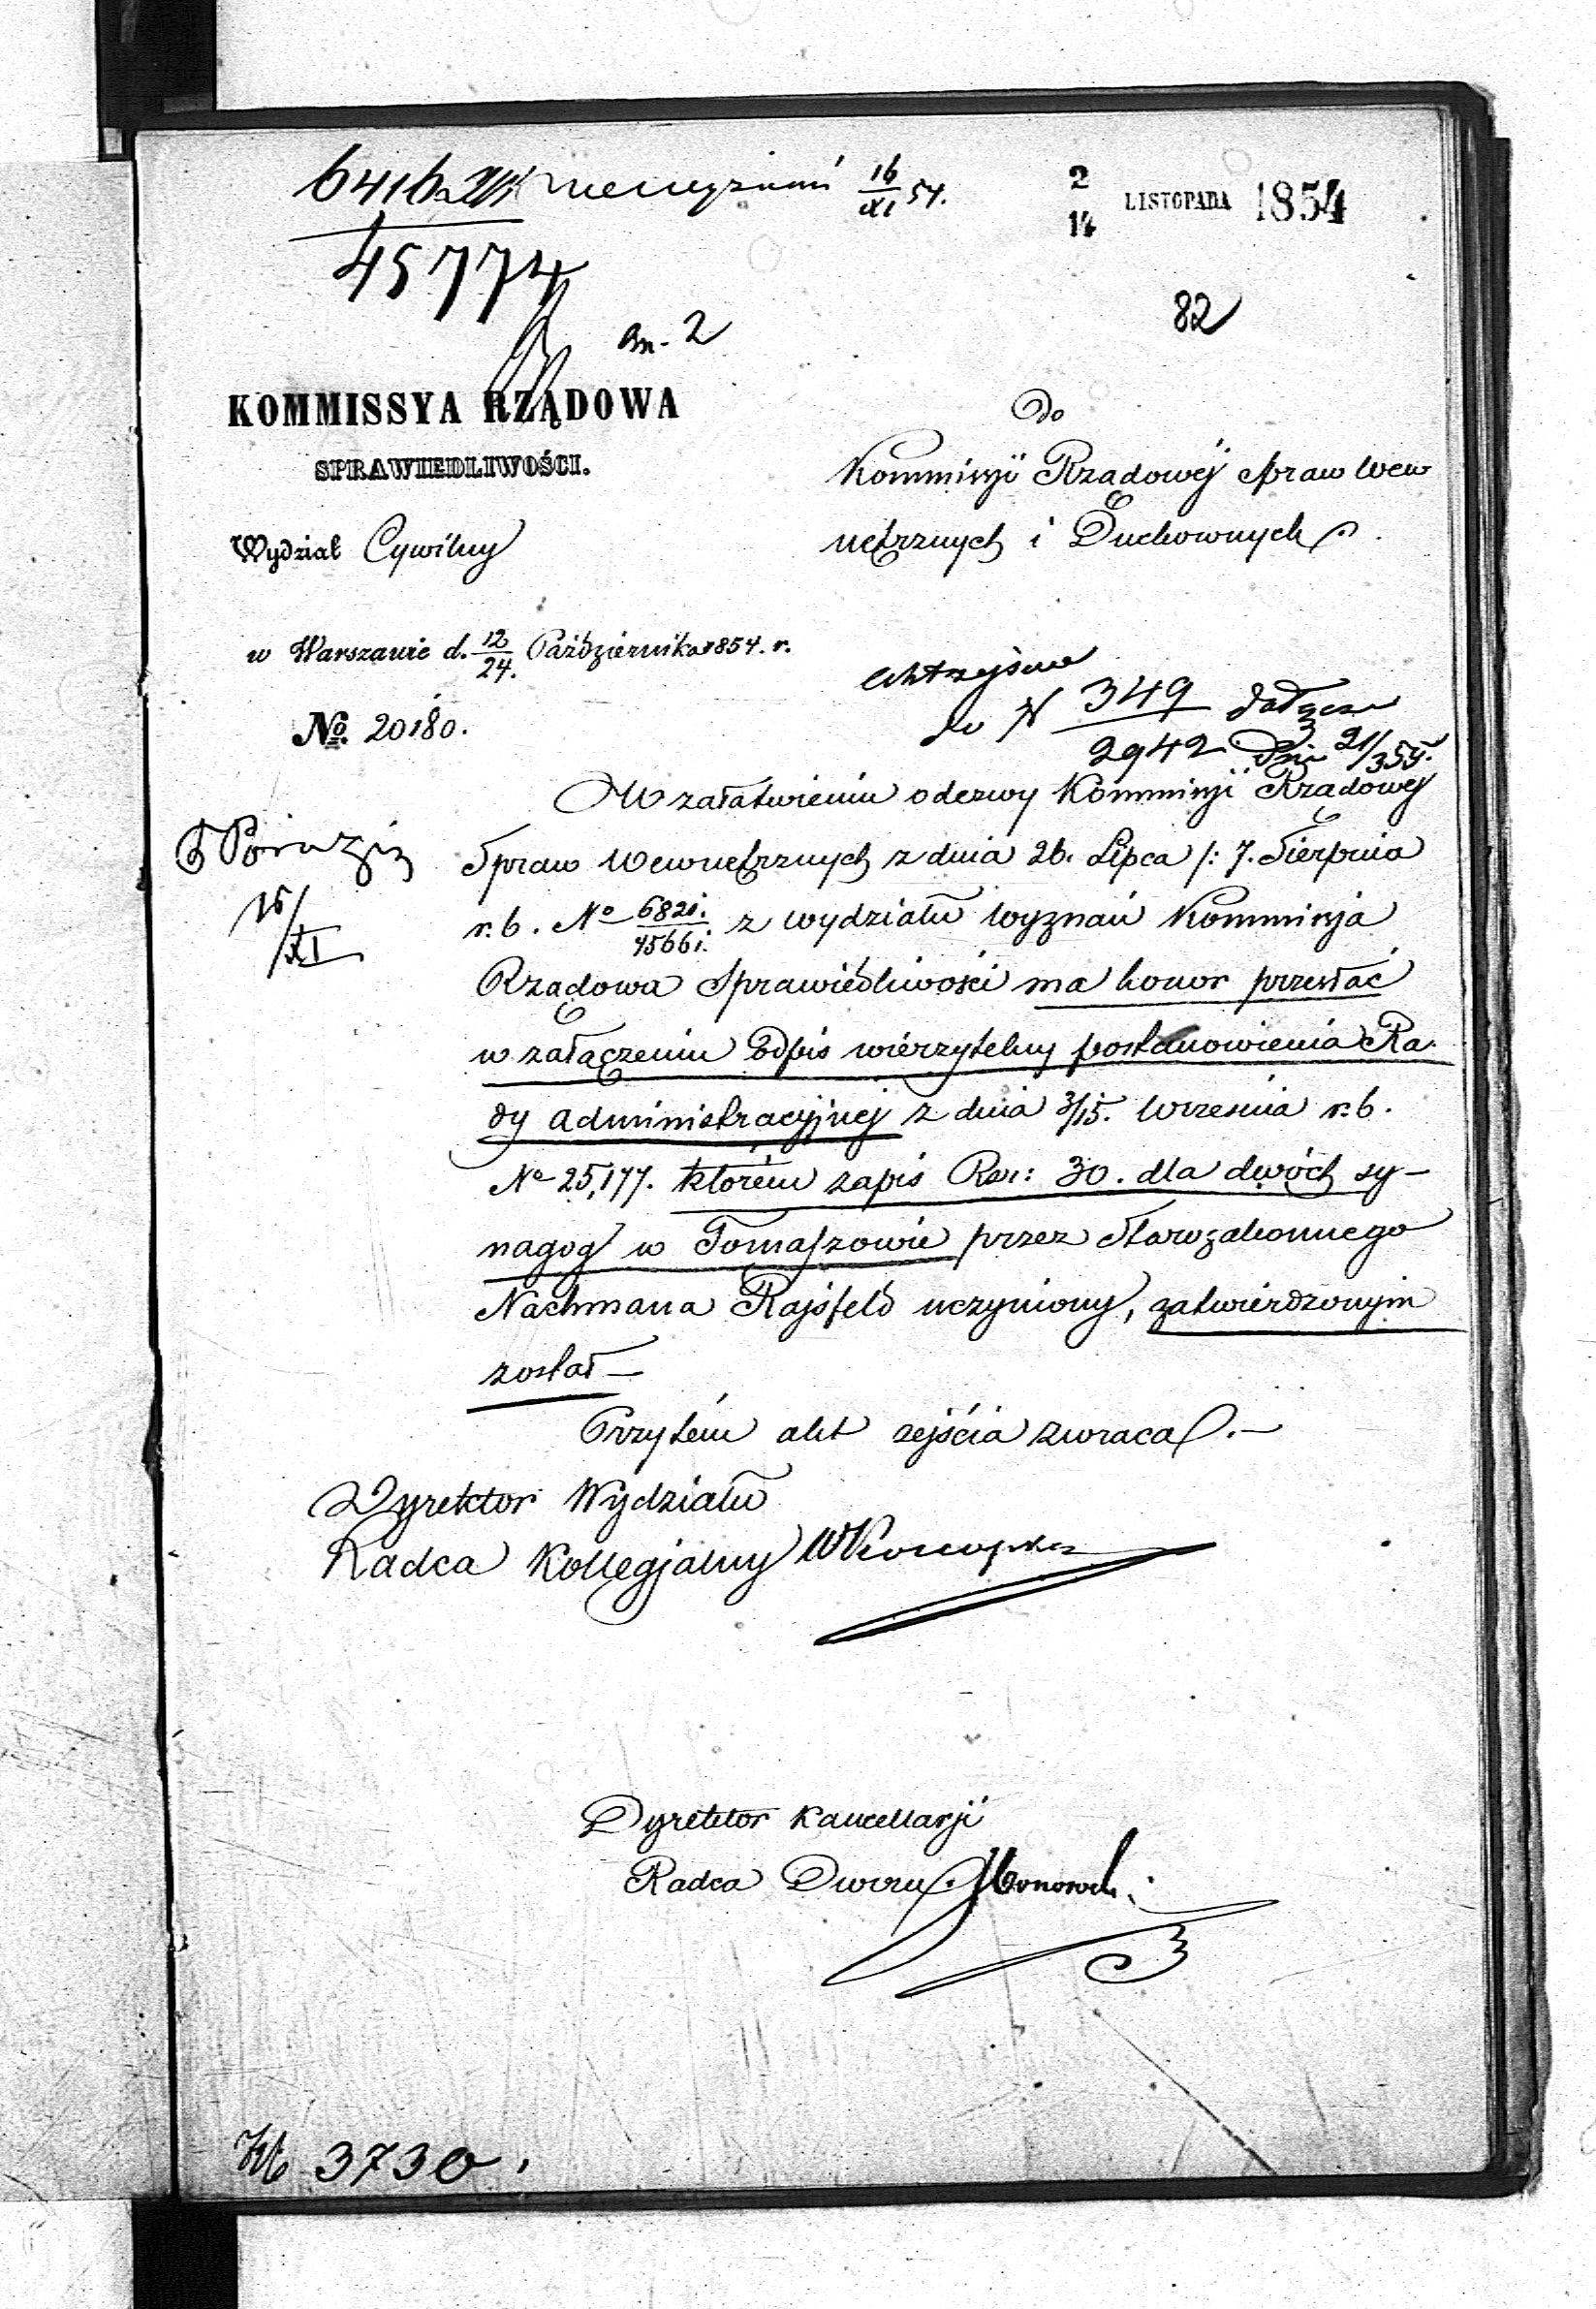 6416
45774
16/XI 54.
2/14 LISTOPADA 1854
an. 2
82
KOMMISSYA RZĄDOWA
SPRAWIEDLIWOŚCI.
Wydział Cywilny
w Warszawie d. 12/24. Października 1854. r.
No. 20180.
Do
Kommissyi Rządowéj Spraw Wew
nętrznych i Duchownych.
akt zejścia
do N 349/2942
dnia 21/3 55.
W załatwieniu odezwy Kommissyi Rządowéj
Spraw Wewnętrznych z dnia 26. Lipca /: 7. Sierpnia
r. b. No 6820./45661. z wydziału wyznań Kommissja
Rządowa Sprawiedliwości ma honor przesłać
w załączeniu odpis wierzytelny postanowienia Ra-
dy Administracyjnej z dnia 3/15. Września r. b.
No 25,177. którém zapis Rsr: 30. dla dwóch sy-
nagog w Tomaszowie przez Starozakonnego
Nachmana Rajsfeld uczyniony, zatwierdzonym
został —
Przytém akt zejścia zwraca. —
15/XI
Dyrektor Wydziału
Radca Kollegjalny
Dyrektor Kancellarji
Radca Dworu
3730.